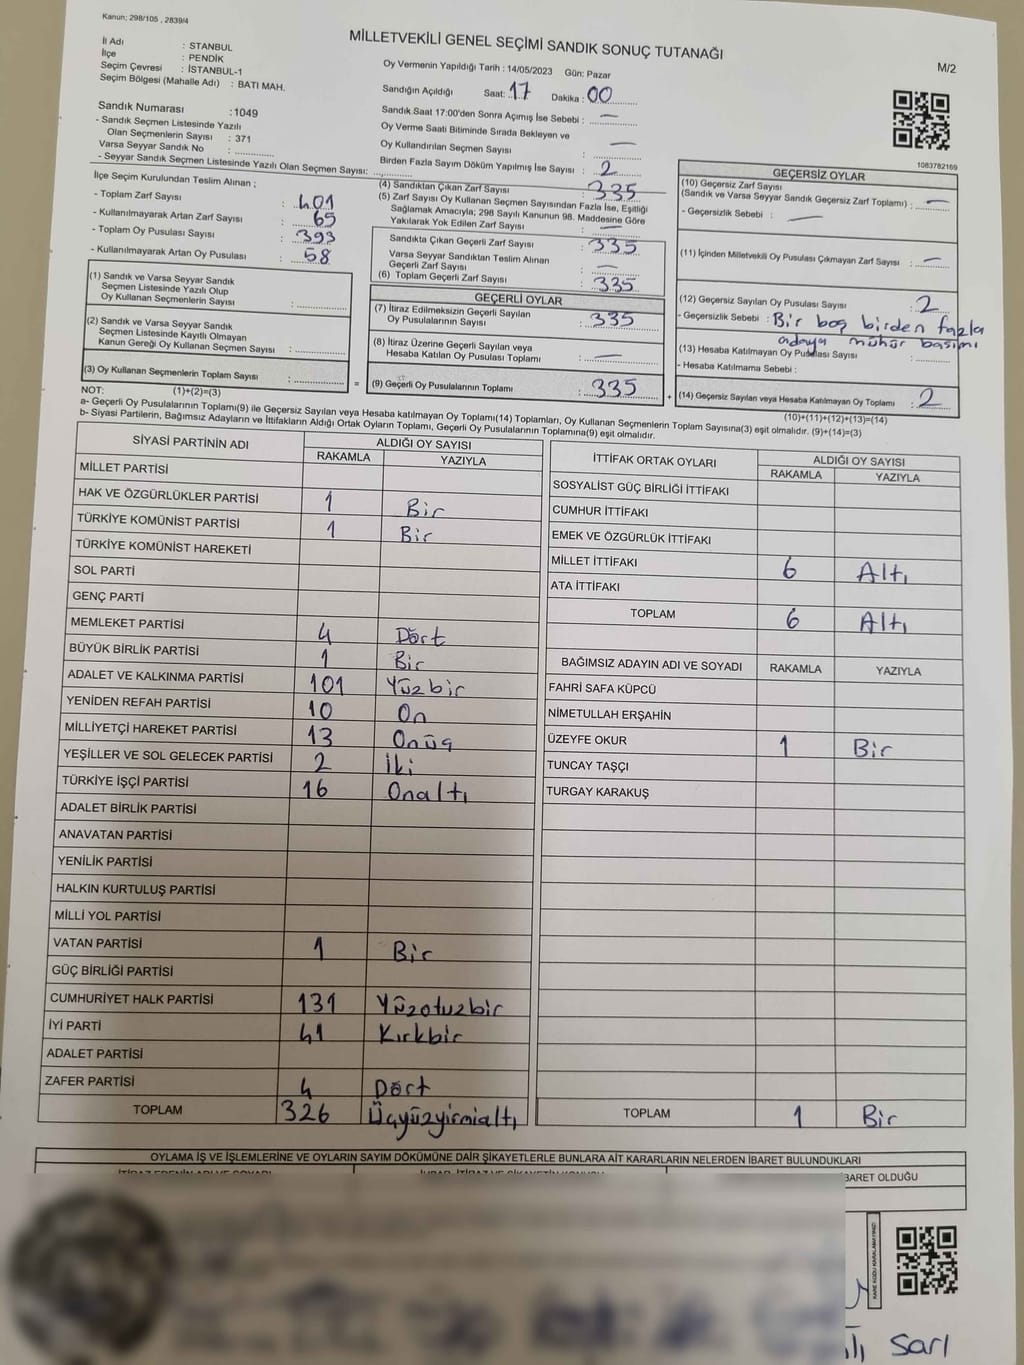 Kanun; 298/105 , 2839/4
MİLLETVEKİLİ GENEL SEÇİMİ SANDIK SONUÇ TUTANAĞI
M/2
İl Adı : STANBUL
İlçe : PENDİK
Seçim Çevresi : İSTANBUL-1
Seçim Bölgesi (Mahalle Adı) : BATI MAH.
Oy Vermenin Yapıldığı Tarih : 14/05/2023 Gün: Pazar
Sandığın Açıldığı Saat: 17 Dakika : 00
Sandık Numarası :1049
- Sandık Seçmen Listesinde Yazılı
Olan Seçmenlerin Sayısı : 371
Varsa Seyyar Sandık No :
- Seyyar Sandık Seçmen Listesinde Yazılı Olan Seçmen Sayısı:
Sandık Saat 17:00'den Sonra Açımış İse Sebebi : —
Oy Verme Saati Bitiminde Sırada Bekleyen ve
Oy Kullandırılan Seçmen Sayısı : —
Birden Fazla Sayım Döküm Yapılmış İse Sayısı : 2
1083782169
İlçe Seçim Kurulundan Teslim Alınan ;
- Toplam Zarf Sayısı : 401
- Kullanılmayarak Artan Zarf Sayısı : 65
- Toplam Oy Pusulası Sayısı : 393
- Kullanılmayarak Artan Oy Pusulası : 58
(1) Sandık ve Varsa Seyyar Sandık
Seçmen Listesinde Yazılı Olup
Oy Kullanan Seçmenlerin Sayısı :
(2) Sandık ve Varsa Seyyar Sandık
Seçmen Listesinde Kayıtlı Olmayan
Kanun Gereği Oy Kullanan Seçmen Sayısı :
(3) Oy Kullanan Seçmenlerin Toplam Sayısı :
(1)+(2)=(3)
(4) Sandıktan Çıkan Zarf Sayısı : 335
(5) Zarf Sayısı Oy Kullanan Seçmen Sayısından Fazla İse, Eşitliği
Sağlamak Amacıyla; 298 Sayılı Kanunun 98. Maddesine Göre
Yakılarak Yok Edilen Zarf Sayısı : —
Sandıkta Çıkan Geçerli Zarf Sayısı : 335
Varsa Seyyar Sandıktan Teslim Alınan
Geçerli Zarf Sayısı : —
(6) Toplam Geçerli Zarf Sayısı : 335
GEÇERLİ OYLAR
(7) İtiraz Edilmeksizin Geçerli Sayılan
Oy Pusulalarının Sayısı : 335
(8) İtiraz Üzerine Geçerli Sayılan veya
Hesaba Katılan Oy Pusulası Toplamı : —
= (9) Geçerli Oy Pusulalarının Toplamı : 335 +
GEÇERSİZ OYLAR
(10) Geçersiz Zarf Sayısı
(Sandık ve Varsa Seyyar Sandık Geçersiz Zarf Toplamı) : —
- Geçersizlik Sebebi : —
(11) İçinden Milletvekili Oy Pusulası Çıkmayan Zarf Sayısı : —
(12) Geçersiz Sayılan Oy Pusulası Sayısı : 2
- Geçersizlik Sebebi : Bir boş birden fazla
adaya mühür basımı
(13) Hesaba Katılmayan Oy Pusulası Sayısı :
- Hesaba Katılmama Sebebi :
(14) Geçersiz Sayılan veya Hesaba Katılmayan Oy Toplamı : 2
(10)+(11)+(12)+(13)=(14)
NOT:
a- Geçerli Oy Pusulalarının Toplamı(9) ile Geçersiz Sayılan veya Hesaba katılmayan Oy Toplamı(14) Toplamları, Oy Kullanan Seçmenlerin Toplam Sayısına(3) eşit olmalıdır. (9)+(14)=(3)
b- Siyasi Partilerin, Bağımsız Adayların ve İttifakların Aldığı Ortak Oyların Toplamı, Geçerli Oy Pusulalarının Toplamına(9) eşit olmalıdır.
SİYASİ PARTİNİN ADI ALDIĞI OY SAYISI
RAKAMLA YAZIYLA
MİLLET PARTİSİ
HAK VE ÖZGÜRLÜKLER PARTİSİ 1 Bir
TÜRKİYE KOMÜNİST PARTİSİ 1 Bir
TÜRKİYE KOMÜNİST HAREKETİ
SOL PARTİ
GENÇ PARTİ
MEMLEKET PARTİSİ 4 Dört
BÜYÜK BİRLİK PARTİSİ 1 Bir
ADALET VE KALKINMA PARTİSİ 101 Yüzbir
YENİDEN REFAH PARTİSİ 10 On
MİLLİYETÇİ HAREKET PARTİSİ 13 Onüç
YEŞİLLER VE SOL GELECEK PARTİSİ 2 İki
TÜRKİYE İŞÇİ PARTİSİ 16 Onaltı
ADALET BİRLİK PARTİSİ
ANAVATAN PARTİSİ
YENİLİK PARTİSİ
HALKIN KURTULUŞ PARTİSİ
MİLLİ YOL PARTİSİ
VATAN PARTİSİ 1 Bir
GÜÇ BİRLİĞİ PARTİSİ
CUMHURİYET HALK PARTİSİ 131 Yüzotuzbir
İYİ PARTİ 41 Kırkbir
ADALET PARTİSİ
ZAFER PARTİSİ 4 Dört
TOPLAM 326 Üçyüzyirmialtı
İTTİFAK ORTAK OYLARI ALDIĞI OY SAYISI
RAKAMLA YAZIYLA
SOSYALİST GÜÇ BİRLİĞİ İTTİFAKI
CUMHUR İTTİFAKI
EMEK VE ÖZGÜRLÜK İTTİFAKI
MİLLET İTTİFAKI 6 Altı
ATA İTTİFAKI
TOPLAM 6 Altı
BAĞIMSIZ ADAYIN ADI VE SOYADI RAKAMLA YAZIYLA
FAHRİ SAFA KÜPCÜ
NİMETULLAH ERŞAHİN
ÜZEYFE OKUR 1 Bir
TUNCAY TAŞÇI
TURGAY KARAKUŞ
TOPLAM 1 Bir
OYLAMA İŞ VE İŞLEMLERİNE VE OYLARIN SAYIM DÖKÜMÜNE DAİR ŞİKAYETLERLE BUNLARA AİT KARARLARIN NELERDEN İBARET BULUNDUKLARI
İTİRAZ EDENİN ADI VE SOYADI
BARET OLDUĞU
KARE KODU KARALAMAYINIZ!
Sarı